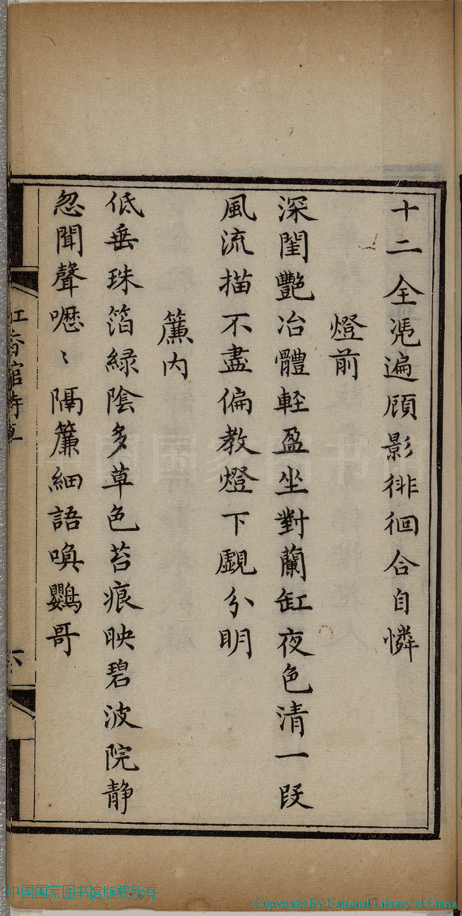 十二全凴遍顧影徘徊合自憐
燈前
深閨艷冶體輕盈坐對蘭缸夜色清一段
風流描不盡偏教燈下覷分明
簾内
低垂珠箔綠陰多草色苔痕映碧波院静
忽聞聲嚦〻隔簾細語喚鸚哥
紅香館詩草
六
中国国家图书馆版权所有
Copyright By National Library of China